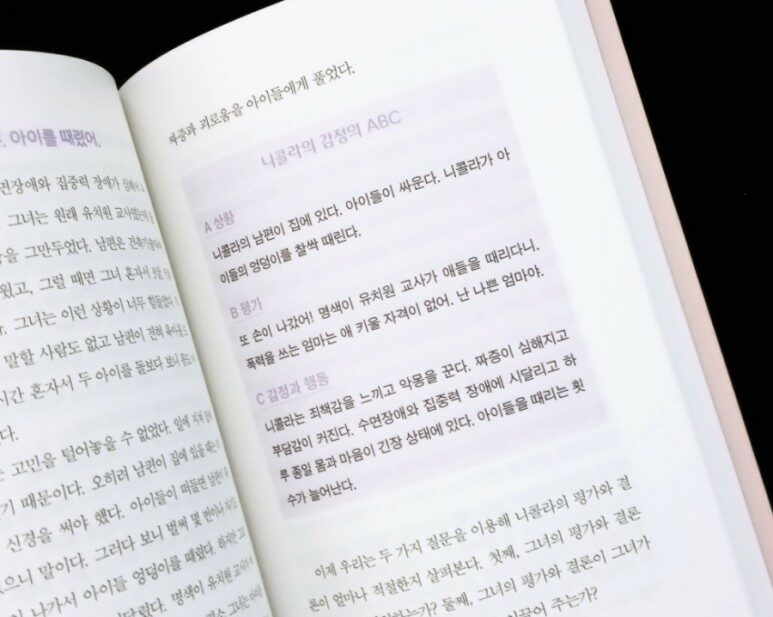 아이를 때렸어.
면장애와 집중력 장애가
그녀는 원래 유치원 교사였는데
을 그만두었다. 남편은
웠고, 그럴 때면 그녀 혼자서
그녀는 이런 상황이 너무 힘들었다.
말할 사람도 없고 남편이 전혀
시간 혼자서 두 아이를 돌보다 보니
다.
는 고민을 털어놓을 수 없었다. 일에 지쳐
기 때문이다. 오히려 남편이 집에 있을 때는
신경을 써야 했다. 아이들이 떠들면 남편이
으니 말이다. 그러다 보니 벌써 몇 번이나
이 나가서 아이들 엉덩이를 때렸다.
명색이 유치원 교사가
짜증과 괴로움을 아이들에게 풀었다.
니콜라의 감정의 ABC
A 상황
니콜라의 남편이 집에 있다. 아이들이 싸운다. 니콜라가 아
이들의 엉덩이를 찰싹 때린다.
B 평가
또 손이 나갔어! 명색이 유치원 교사가 애들을 때리다니.
폭력을 쓰는 엄마는 애 키울 자격이 없어. 난 나쁜 엄마야.
C 감정과 행동
니콜라는 죄책감을 느끼고 악몽을 꾼다. 짜증이 심해지고
부담감이 커진다. 수면장애와 집중력 장애에 시달리고 하
루 종일 몸과 마음이 긴장 상태에 있다. 아이들을 때리는 횟
수가 늘어난다.
이제 우리는 두 가지 질문을 이용해 니콜라의 평가와 결
론이 얼마나 적절한지 살펴본다. 첫째, 그녀의 평가와 결론
둘째, 그녀의 평가와 결론이 그녀가
이끌어 주는가?